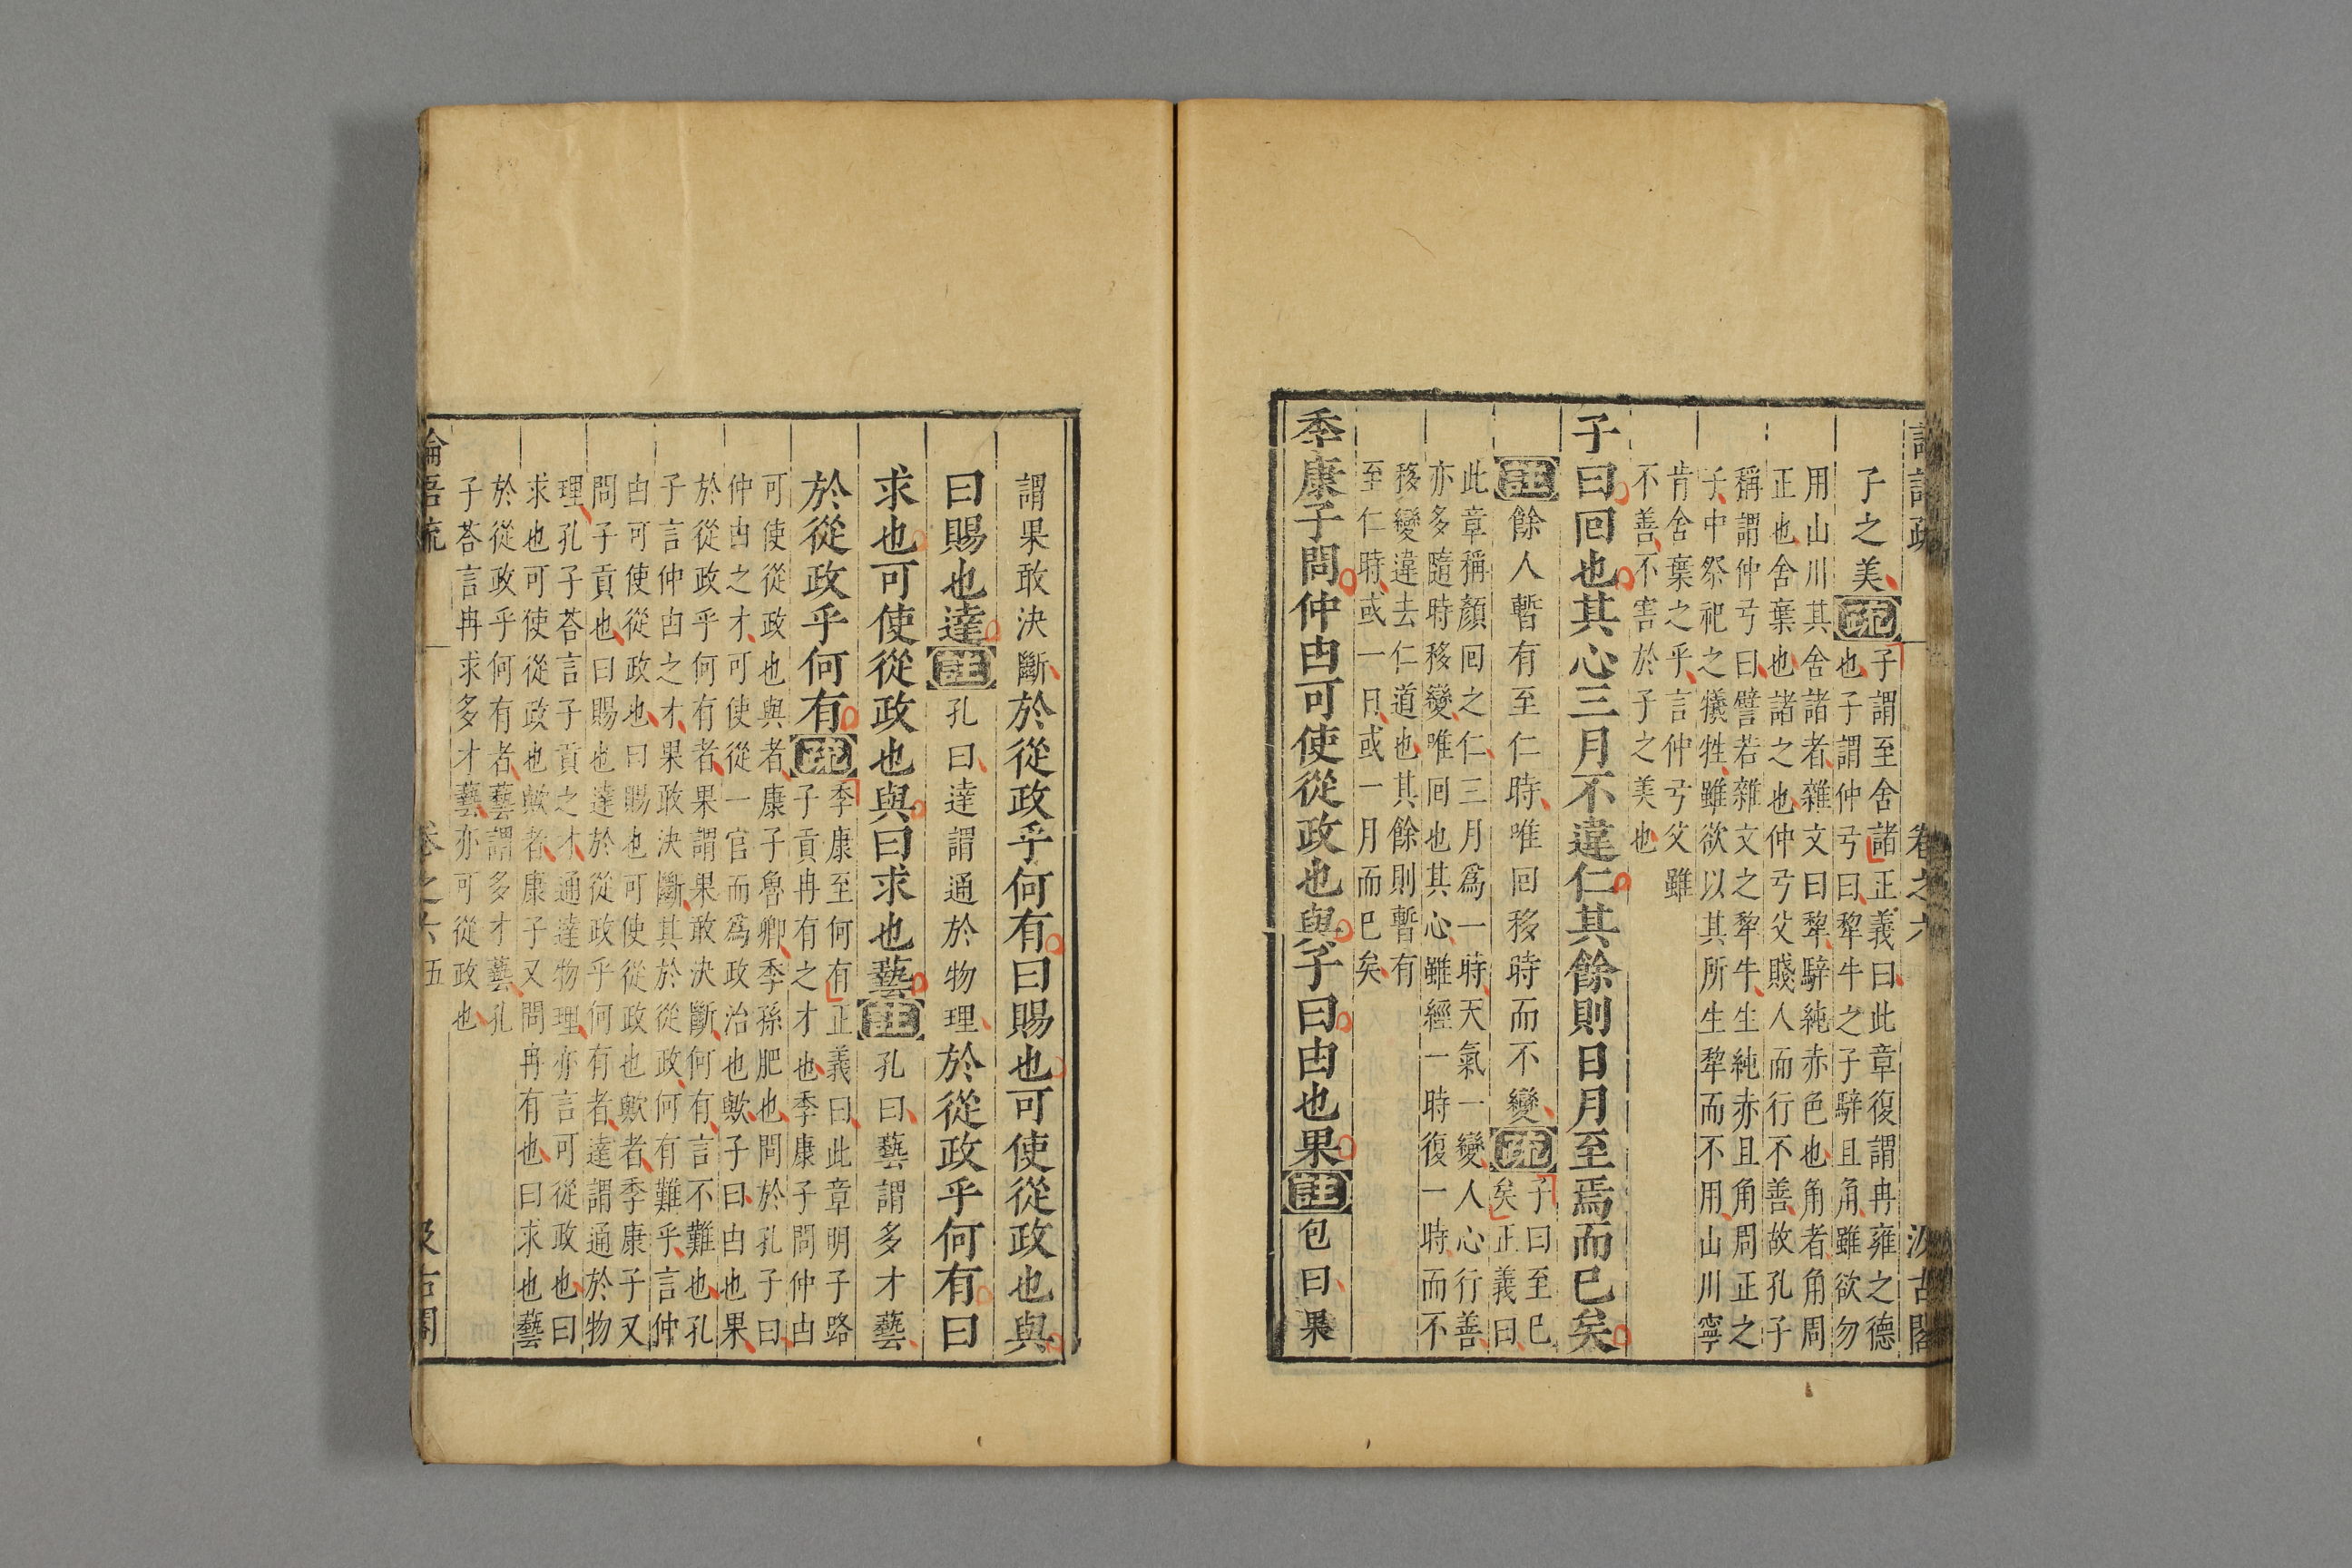 論語疏 卷之六 汲古閣
子之美疏子謂至舍諸正義曰此章復謂冉雍之德
也子謂仲弓曰犂牛之子騂且角雖欲勿
用山川其舍諸者雜文曰犂騂純赤色也角者角周
正也舍棄也諸之也仲弓父賤人而行不善故孔子
稱謂仲弓曰譬若雜文之犂牛生純赤且角周正之
子中祭祀之犧牲雖欲以其所生犂而不用山川寧
肯舍棄之乎言仲弓父雖
不善不害於子之美也
子曰回也其心三月不違仁其餘則日月至焉而已矣
註餘人暫有至仁時唯回移時而不變疏子曰至已
矣正義曰
此章稱顏回之仁三月爲一時天氣一變人心行善
亦多隨時移變唯回也其心雖經一時復一時而不
移變違去仁道也其餘則暫有
至仁時或一日或一月而已矣
季康子問仲由可使從政也與子曰由也果註包曰果
謂果敢決斷於從政乎何有曰賜也可使從政也與
曰賜也達註孔曰達謂通於物理於從政乎何有曰
求也可使從政也與曰求也藝註孔曰藝謂多才藝
於從政乎何有疏季康至何有正義曰此章明子路
子貢冉有之才也季康子問仲由
可使從政也與者康子魯卿季孫肥也問於孔子曰
仲由之才可使從一官而爲政治也歟子曰由也果
於從政乎何有者果謂果敢決斷何有言不難也孔
子言仲由之才果敢決斷其於從政何有難乎言仲
由可使從政也曰賜也可使從政也歟者季康子又
問子貢也曰賜也達於從政乎何有者達謂通於物
理孔子荅言子貢之才通達物理亦言可從政也曰
求也可使從政也歟者康子又問冉有也曰求也藝
於從政乎何有者藝謂多才藝孔
子荅言冉求多才藝亦可從政也
論語疏 卷之六 五 汲古閣